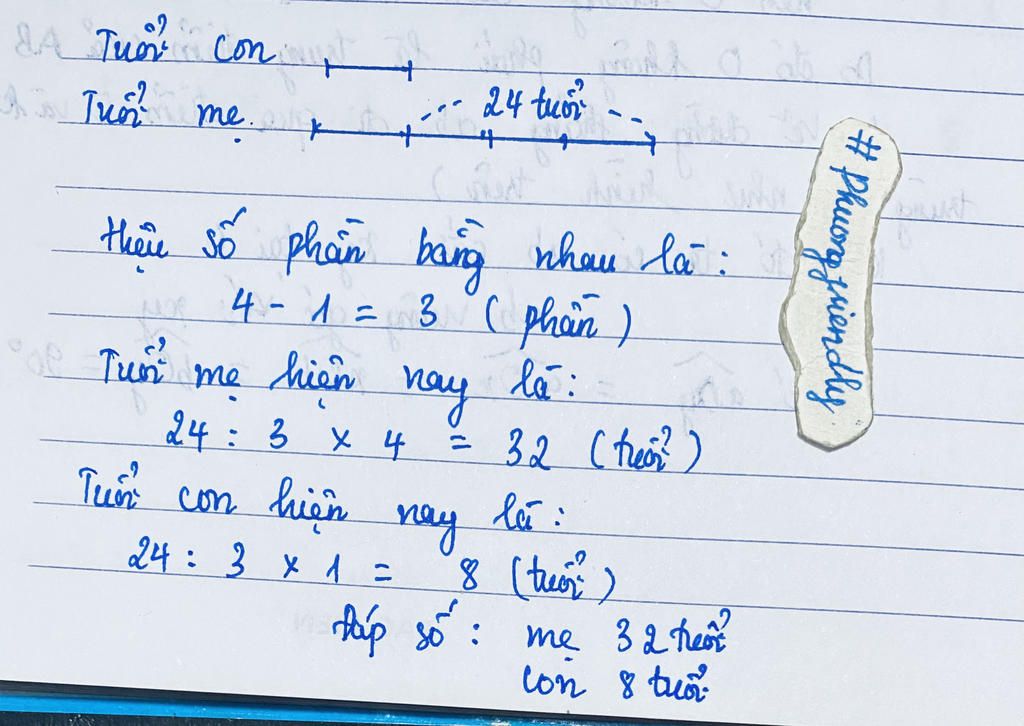 Tuổi con
Tuổi mẹ
24 tuổi
Hiệu số phần bằng nhau là:
4 - 1 = 3 (phần)
Tuổi mẹ hiện nay là:
24 : 3 x 4 = 32 (tuổi)
Tuổi con hiện nay là:
24 : 3 x 1 = 8 (tuổi)
Đáp số : mẹ 32 tuổi
con 8 tuổi
#phuongtriendhy